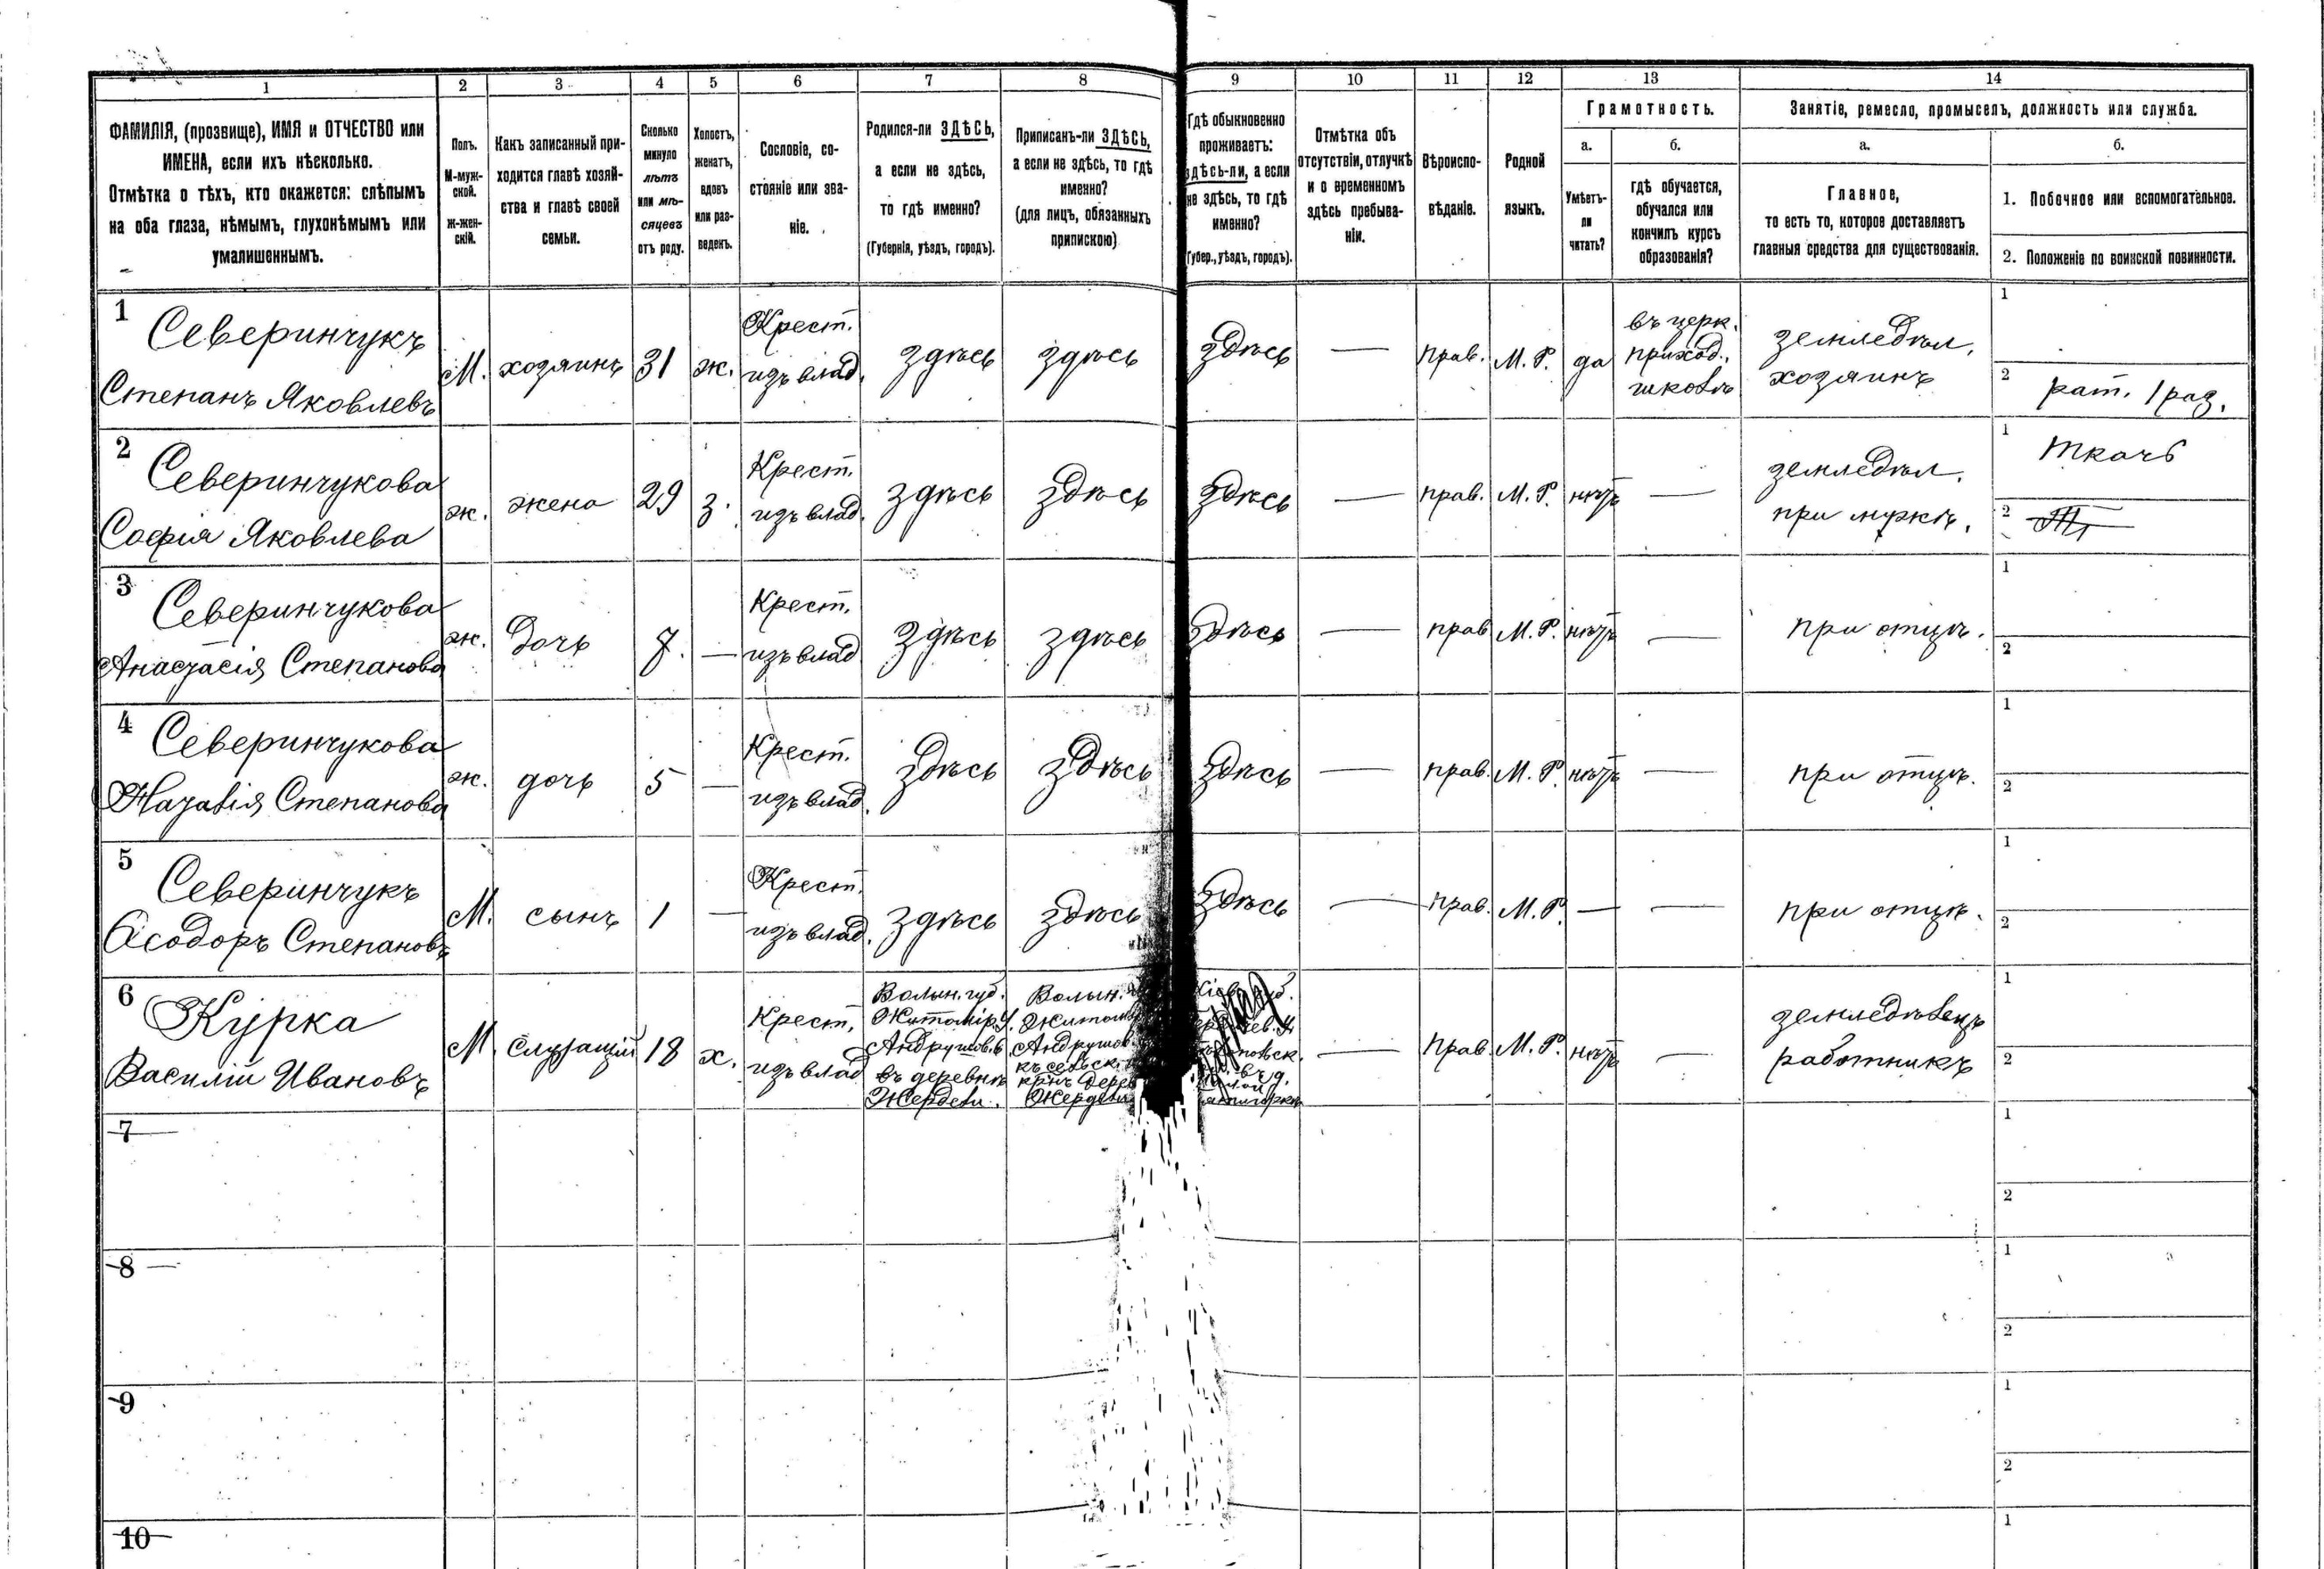 1 2 3 4 5 6 7 8 9 10 11 12 13 14
ФАМИЛІЯ, (прозвище), ИМЯ и ОТЧЕСТВО или
ИМЕНА, если ихъ нѣсколько.
Отмѣтка о тѣхъ, кто окажется: слѣпымъ
на оба глаза, нѣмымъ, глухонѣмымъ или
умалишеннымъ.
Полъ.
М-муж-
ской.
Ж-жен-
скій.
Какъ записанный при-
ходится главѣ хозяй-
ства и главѣ своей
семьи.
Сколько
минуло
лѣтъ
или мѣ-
сяцевъ
отъ роду.
Холостъ,
женатъ,
вдовъ
или раз-
веденъ.
Сословіе, со-
стояніе или зва-
ніе.
Родился-ли ЗДѢСЬ,
а если не здѣсь,
то гдѣ именно?
(Губернія, уѣздъ, городъ).
Приписанъ-ли ЗДѢСЬ,
а если не здѣсь, то гдѣ
именно?
(для лицъ, обязанныхъ
припискою)
Гдѣ обыкновенно
проживаетъ:
здѣсь-ли, а если
не здѣсь, то гдѣ
именно?
Губер., уѣздъ, городъ).
Отмѣтка объ
отсутствіи, отлучкѣ
и о временномъ
здѣсь пребыва-
ніи.
Вѣроиспо-
вѣданіе.
Родной
языкъ.
Грамотность.
а.
Умѣетъ-
ли
читать?
б.
гдѣ обучается,
обучался или
кончилъ курсъ
образованія?
Занятіе, ремесло, промыселъ, должность или служба.
а.
Главное,
то есть то, которое доставляетъ
главныя средства для существованія.
б.
1. Побочное или вспомогательное.
2. Положеніе по воинской повинности.
1
Северинчукъ
Степанъ Яковлевъ
М.
хозяинъ
31
ж.
Крест.
изъ влад.
здѣсь
здѣсь
здѣсь
—
прав.
М. Р.
да
въ церк.
приход.
школѣ
земледѣл.
хозяинъ
1
2 рат. 1 раз.
2
Северинчукова
Софія Яковлева
ж.
жена
29
з.
Крест.
изъ влад.
здѣсь
здѣсь
здѣсь
—
прав.
М. Р.
нѣтъ
—
земледѣл.
при мужѣ.
1 ткачъ
2
3
Северинчукова
Анастасія Степанова
ж.
дочь
7.
—
Крест.
изъ влад
здѣсь
здѣсь
здѣсь
—
прав
М. Р.
нѣтъ
—
при отцѣ.
1
2
4
Северинчукова
Наталія Степанова
ж.
дочь
5
—
Крест.
изъ влад.
здѣсь
здѣсь
здѣсь
—
прав.
М. Р.
нѣтъ
—
при отцѣ.
1
2
5
Северинчукъ
Ѳеодоръ Степановъ
М.
сынъ
1
—
Крест.
изъ влад.
здѣсь
здѣсь
здѣсь
—
прав.
М. Р.
—
—
при отцѣ.
1
2
6
Курка
Василій Ивановъ
М.
служащій
18
х.
Крест.
изъ влад
Волын. губ.
Житомір. у.
Андрушов. в.
въ деревнѣ
Жердели.
Волын.
Житом
Андрушов.
Жердели
—
прав
М. Р.
нѣтъ
—
земледѣлецъ
работникъ
1
2
7
1
2
8
1
2
9
1
2
10
1